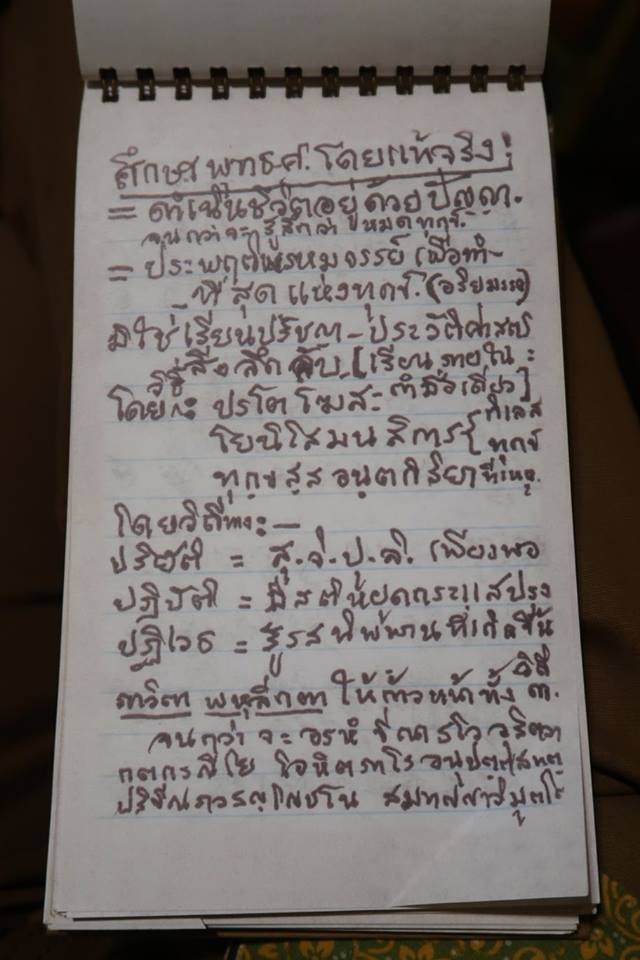 ศึกษา พุทธ.ศ. โดยแท้จริง!
= ดำเนินชีวิตอยู่ด้วยปัญญา.
จนกว่าจะรู้สึกว่า หมดทุกข์.
= ประพฤติพรหมจรรย์ เพื่อทำ-
ที่สุดแห่งทุกข์. (อริยมรรค)
มิใช่เรียนปรัชญา - ประวัติศาสตร์
สิ่งลึกลับ. [เรียนภายใน :
โดย ปรโตโฆสะ ทำผิวเดียว]
โยนิโสมนสิการ { กิเลส
ทุกข์
ทุกฺขสฺส อนฺตกิริยา ที่เหตุ.
โดยวิถีทาง: —
ปริยัติ = สุ.จิ.ปุ.ลิ. เพียงพอ
ปฏิบัติ = มีสติหยุดกระแสปรุง
ปฏิเวธ = รู้รสนิพพานที่เกิดขึ้น
ภาวิตา พหุลีกตา ให้ก้าวหน้าทั้ง ๓. วิถี
จนกว่าจะ อรหํ ขีณาสโว วุสิตวา
กตกรณีโย โอหิตภาโร อนุปฺปตฺตสทตฺ
ปริขีณภวสญฺโญชโน สมฺมทญฺญาวิมุตฺโต